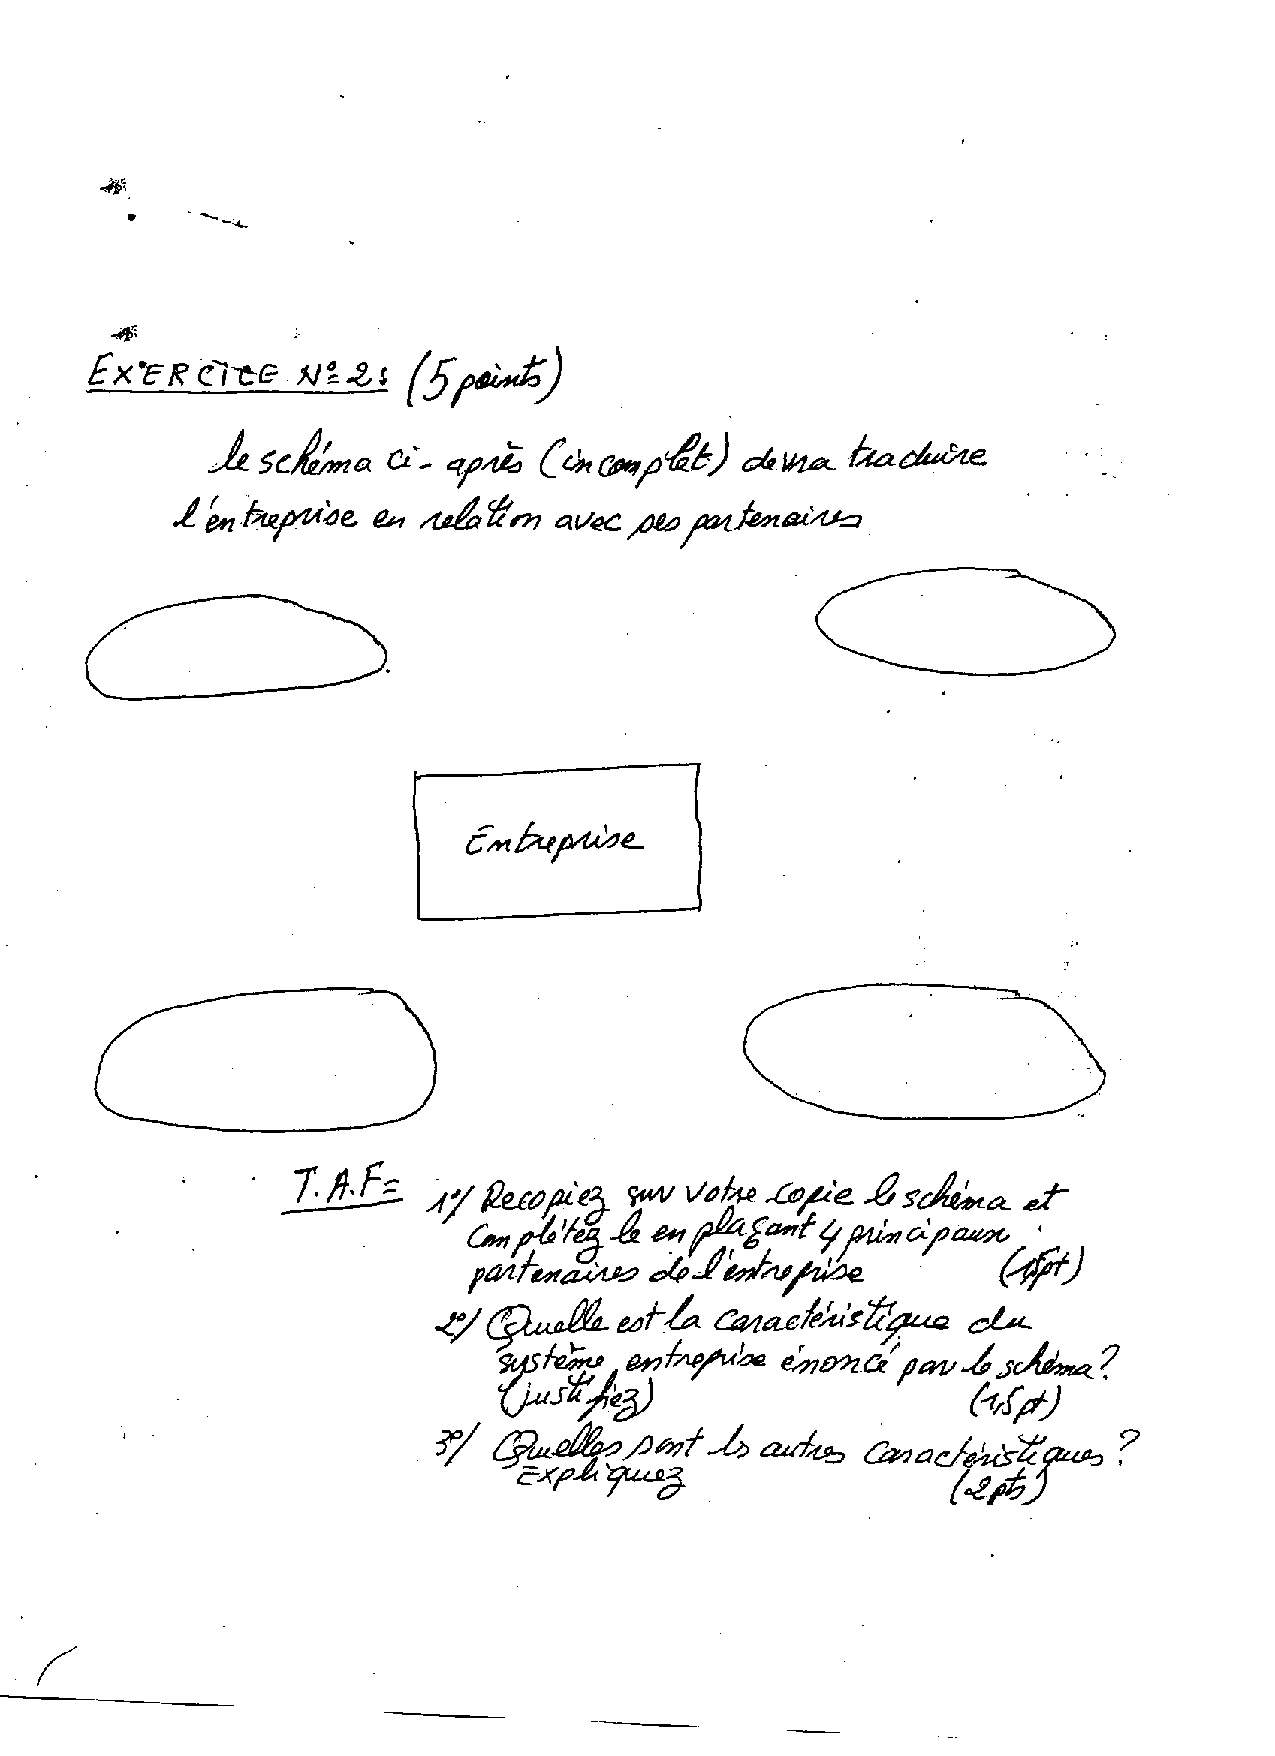 EXERCICE N° 2: (5 points)
le schéma ci-après (incomplet) devra traduire
l'entreprise en relation avec ses partenaires
Entreprise
T.A.F= 1°/ Recopiez sur votre copie le schéma et
complétez le en plaçant 4 principaux
partenaires de l'entreprise (1,5pt)
2°/ Quelle est la caractéristique du
système entreprise énoncé par le schéma?
(justifiez) (1,5 pt)
3°/ Quelles sont les autres caractéristiques?
Expliquez (2 pts)